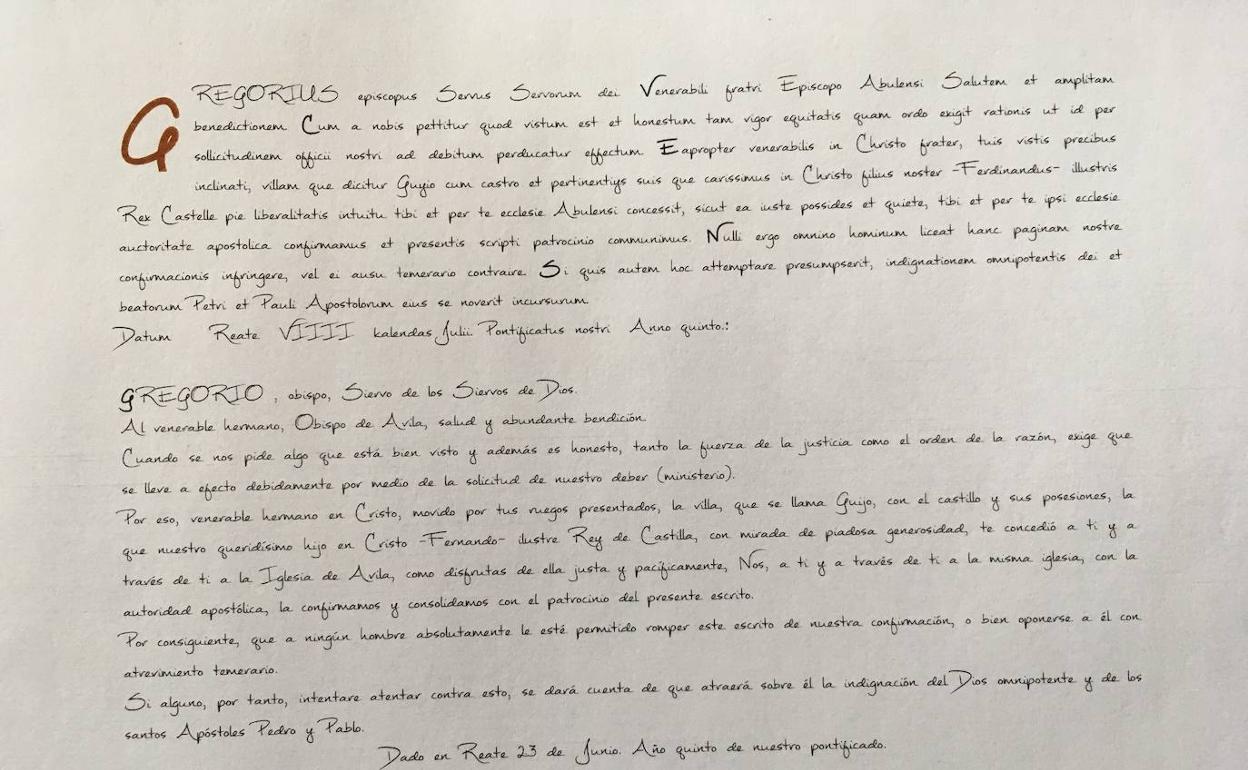 GREGORIUS episcopus Servus Servorum dei Venerabili fratri Episcopo Abulensi Salutem et amplitam
benedictionem Cum a nobis pettitur quod vistum est et honestum tam vigor equitatis quam ordo exigit rationis ut id per
sollicitudinem officii nostri ad debitum perducatur effectum Eapropter venerabilis in Christo frater, tuis vistis precibus
inclinati, villam que dicitur Guyio cum castro et pertinentiys suis que carissimus in Christo filius noster -Ferdinandus- illustris
Rex Castelle pie liberalitatis intuitu tibi et per te ecclesie Abulensi concessit, sicut ea iuste possides et quiete, tibi et per te ipsi ecclesie
auctoritate apostolica confirmamus et presentis scripti patrocinio communimus. Nulli ergo omnino hominum liceat hanc paginam nostre
confirmacionis infringere, vel ei ausu temerario contraire. Si quis autem hoc attemptare presumpserit, indignationem omnipotentis dei et
beatorum Petri et Pauli Apostolorum eius se noverit incursurum.
Datum Reate VIIII kalendas Julii. Pontificatus nostri Anno quinto.:
GREGORIO, obispo, Siervo de los Siervos de Dios.
Al venerable hermano, Obispo de Avila, salud y abundante bendición.
Cuando se nos pide algo que está bien visto y además es honesto, tanto la fuerza de la justicia como el orden de la razón, exige que
se lleve a efecto debidamente por medio de la solicitud de nuestro deber (ministerio).
Por eso, venerable hermano en Cristo, movido por tus ruegos presentados, la villa, que se llama Guijo, con el castillo y sus posesiones, la
que nuestro queridísimo hijo en Cristo -Fernando- ilustre Rey de Castilla, con mirada de piadosa generosidad, te concedió a ti y a
través de ti a la Iglesia de Avila, como disfrutas de ella justa y pacíficamente, Nos, a ti y a través de ti a la misma iglesia, con la
autoridad apostólica, la confirmamos y consolidamos con el patrocinio del presente escrito.
Por consiguiente, que a ningún hombre absolutamente le esté permitido romper este escrito de nuestra confirmación, o bien oponerse a él con
atrevimiento temerario.
Si alguno, por tanto, intentare atentar contra esto, se dará cuenta de que atraerá sobre él la indignación del Dios omnipotente y de los
santos Apóstoles Pedro y Pablo.
Dado en Reate 23 de Junio. Año quinto de nuestro pontificado.